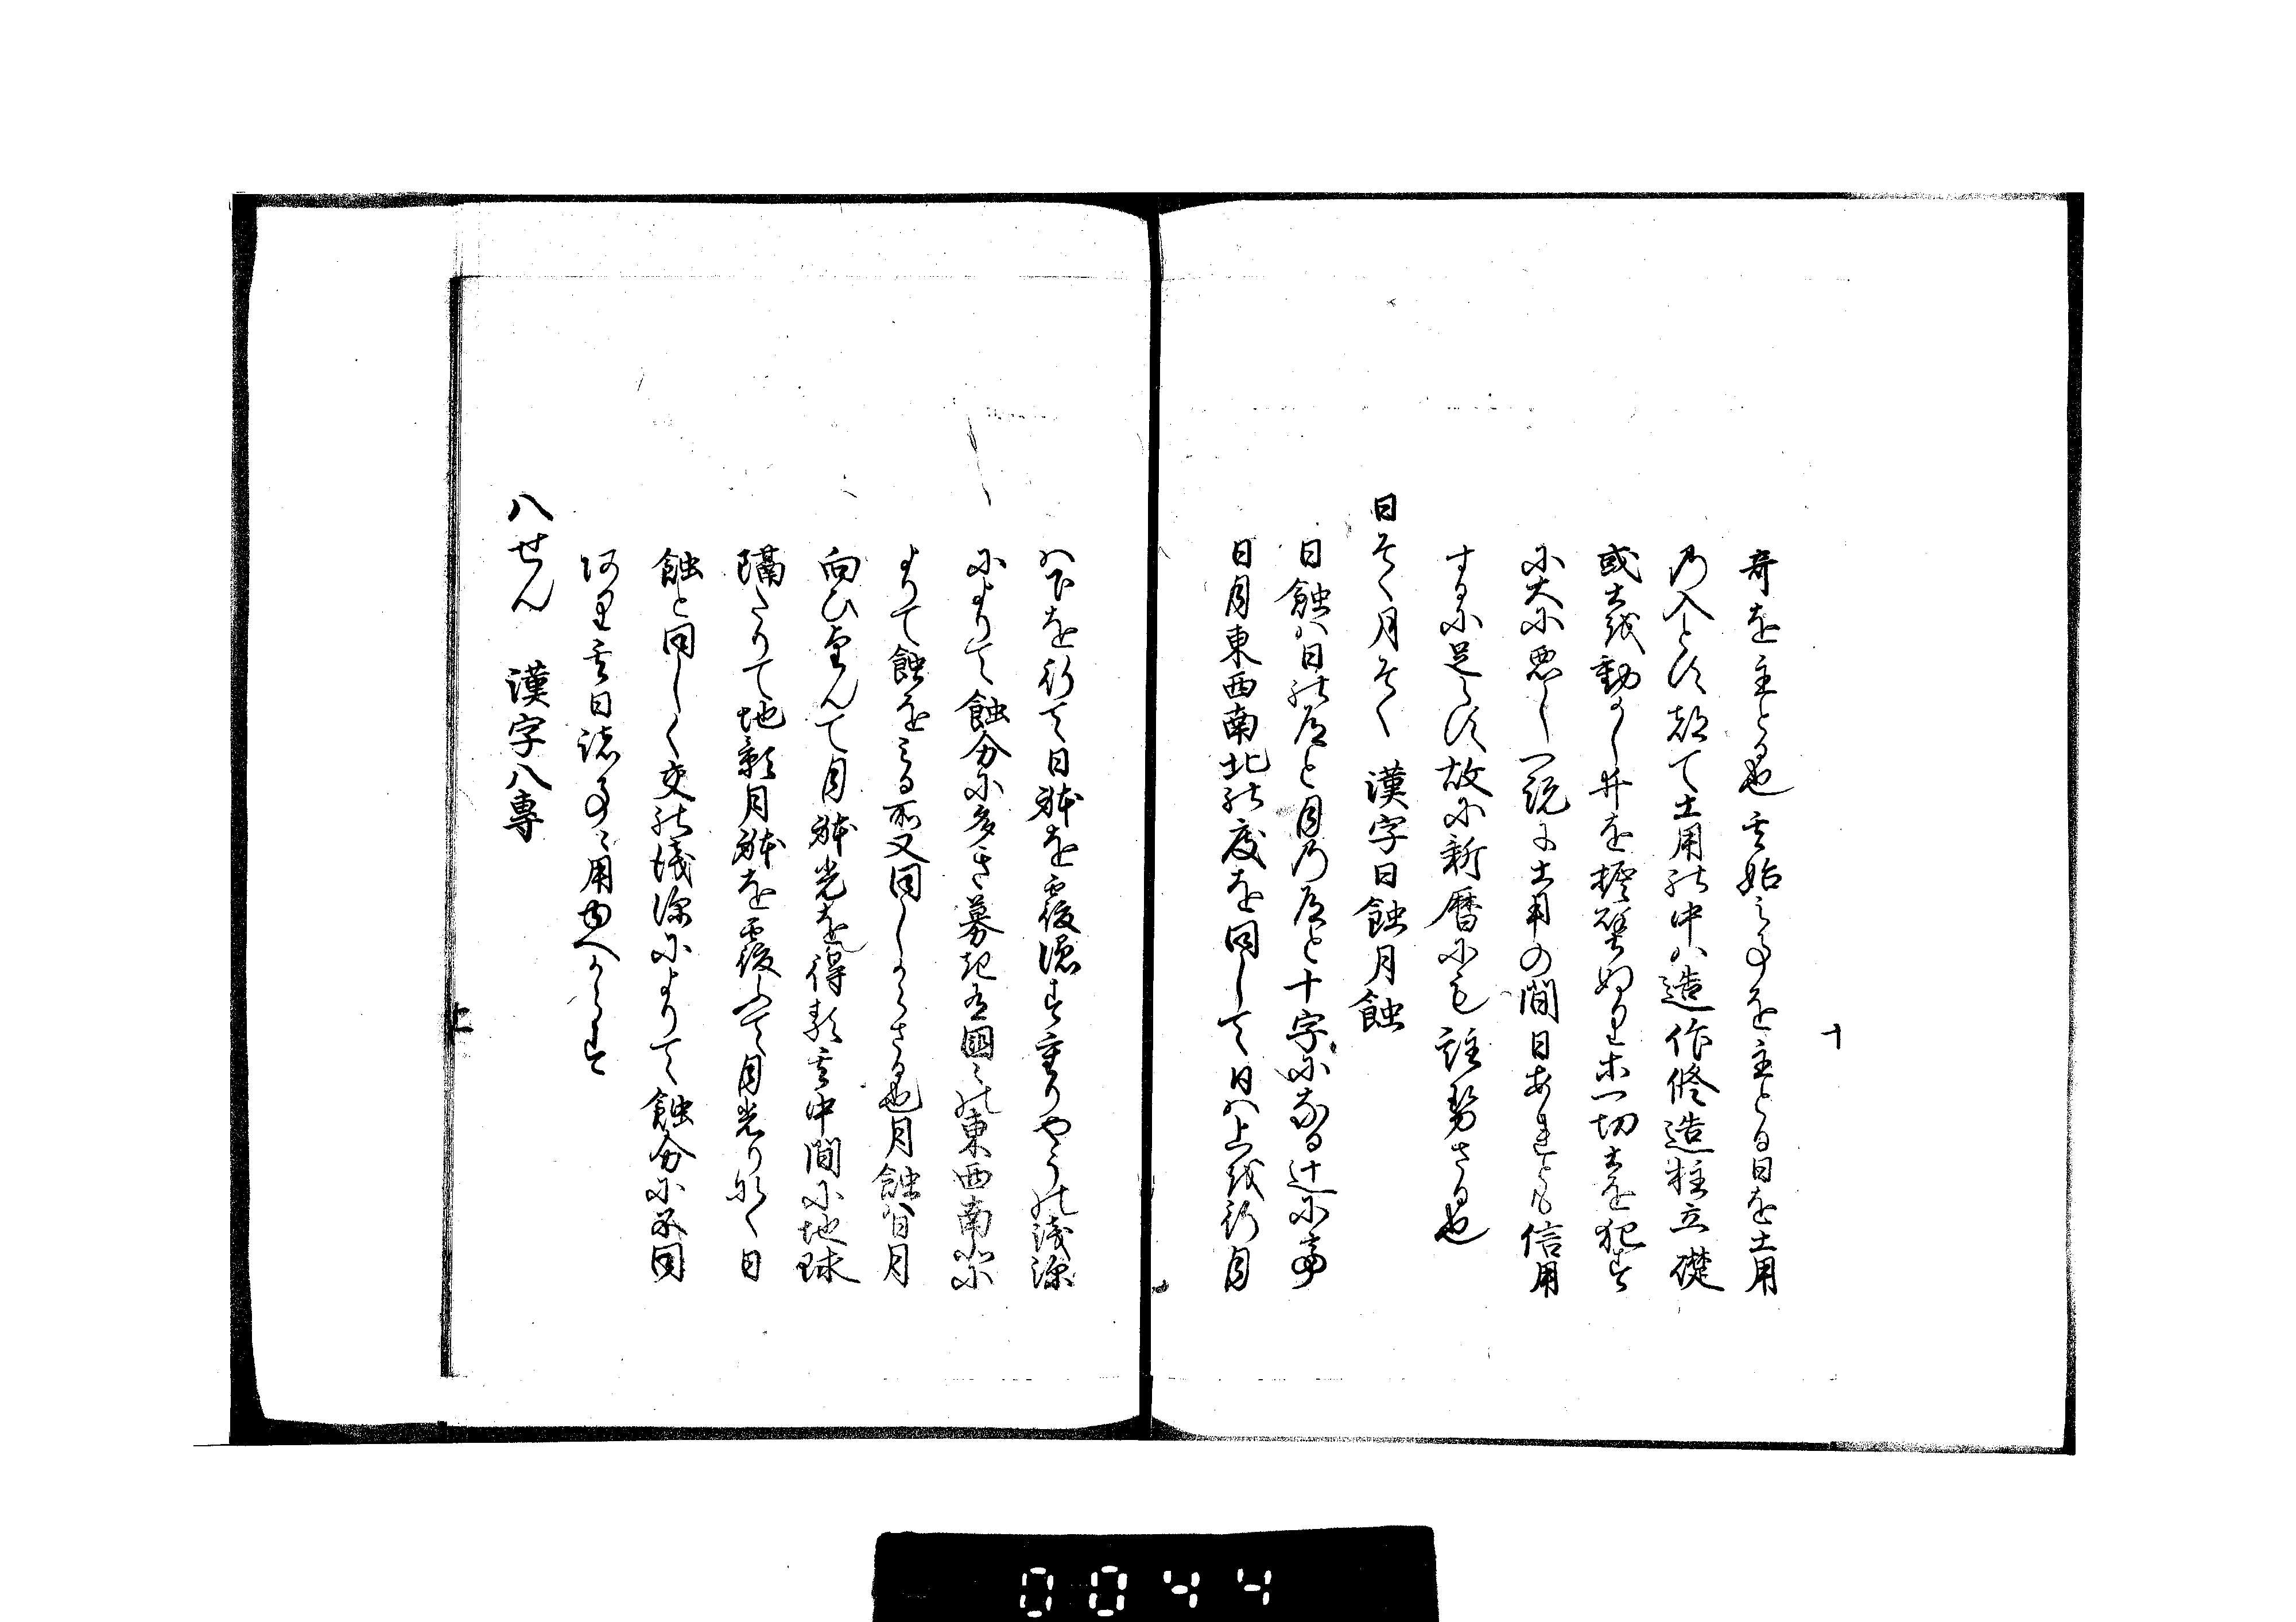 十
奇を主とる也其始之事を主とる日を土用
乃入とす都て土用の中ハ造作修造柱立礎
或土を動かし井を掘壁ぬり等一切土を犯す
に大に悪し一説に土用の間日あれとも信用
するに足らす故に新暦にも註せさる也
日そく月そく 漢字日蝕月蝕
日蝕ハ日の道と月乃道と十字になる辻に
日月東西南北の度を同して日ハ上を行月
ハ下を行て日躰を覆隠す重りやうの浅深
によりて蝕分に多き寡き有国々の東西南北に
よりて蝕をみる所又同しからさる也月蝕ハ日月
向ひ望んて月躰光を得る其中間に地球
隔たりて地影月躰を覆ふて月光りなく日
蝕と同しく交の浅深によりて蝕分に不同
あり其日諸事に用ゆへからす
八せん 漢字八専
0044